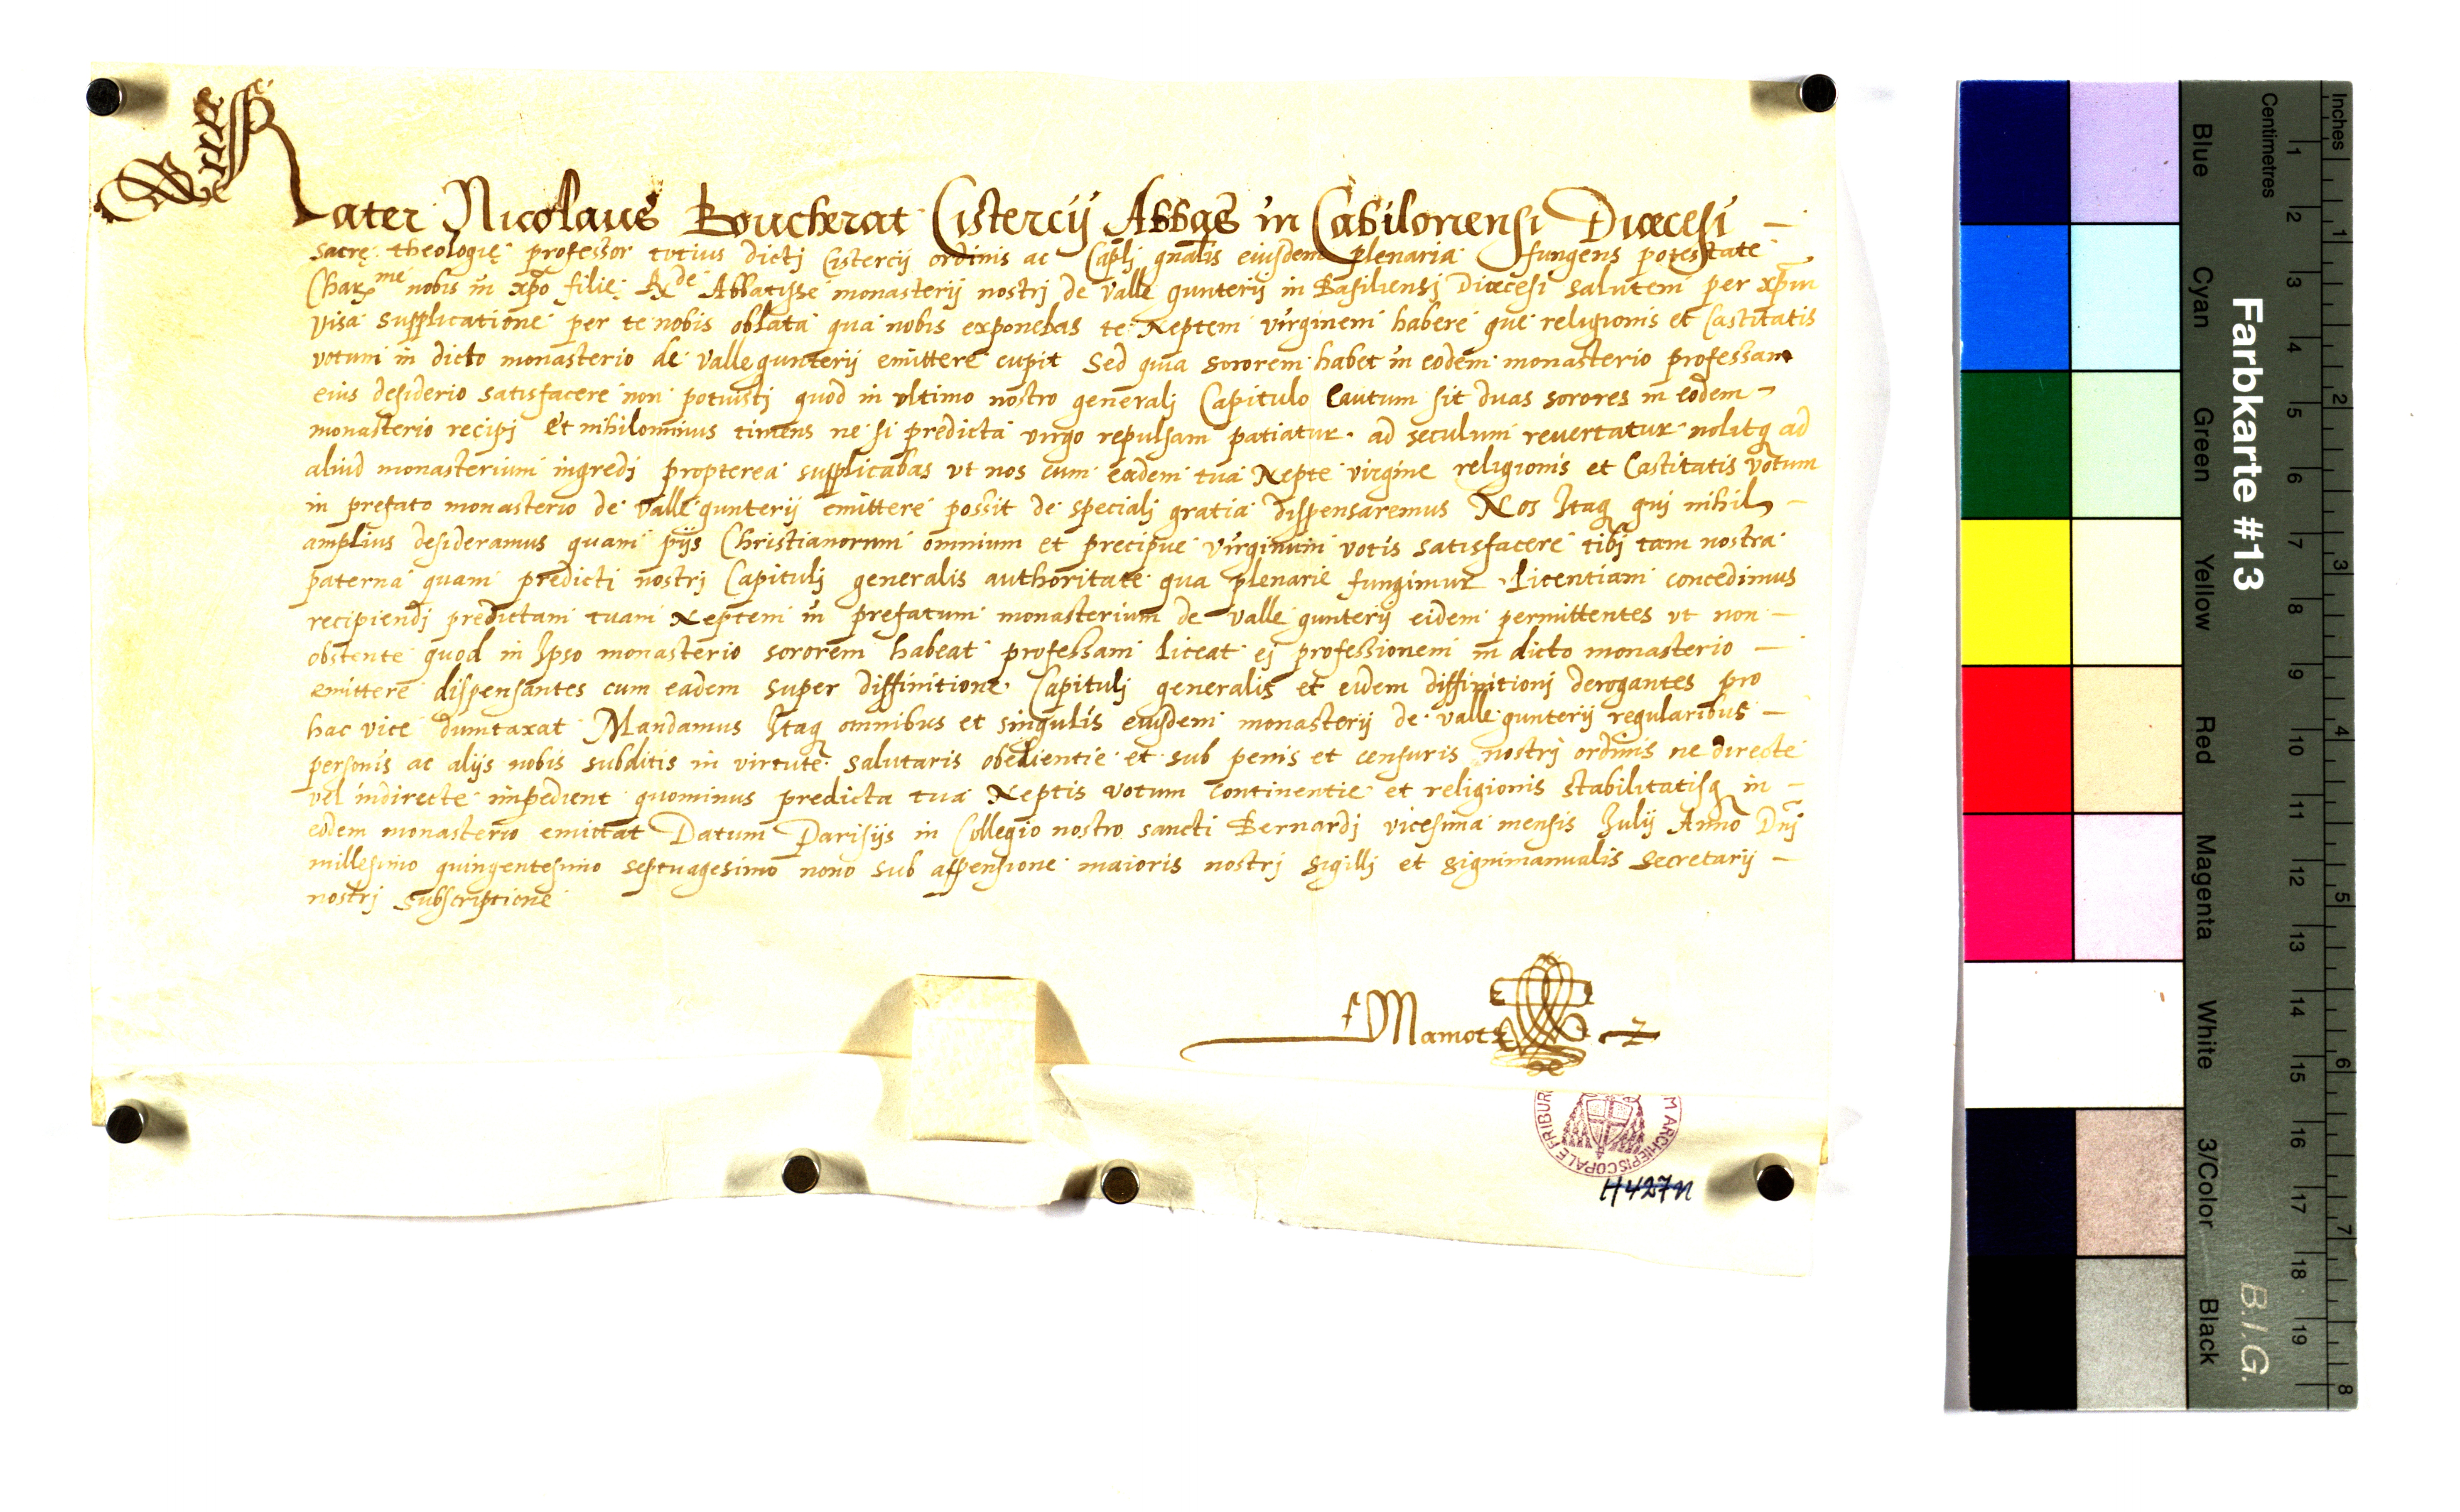 Frater Nicolaus Boucherat Cistercij Abbas in Cabilonensi Diœcesi —
sacrę theologię professor totius dictj Cistercij ordinis ac Caplj gnalis eiusdem plenaria fungens potestate
Charme nobis in xp̄o filie Rde Abbatisse monasterij nostrj de valle gunterij in Basiliensj Diœcesi salutem per xpm
visa supplicatione per te nobis oblata qua nobis exponebas te Neptem virginem habere que religionis et Castitatis
votum in dicto monasterio de valle gunterij emittere cupit Sed quia sororem habet in eodem monasterio professam
eius desiderio satisfacere non potuistj quod in vltimo nostro generalj Capitulo Cautum sit duas sorores in eodem
monasterio recipj Et nihilominus timens ne si predicta virgo repulsam patiatur ad seculum reuertatur nolitq ad
aliud monasterium ingredj propterea supplicabas vt nos cum eadem tua Nepte virgine religionis et Castitatis votum
in prefato monasterio de valle gunterij emittere possit de specialj gratia dispensaremus Nos Itaq quj nihil —
amplius desideramus quam pijs Christianorum omnium et precipue virginum votis satisfacere tibj tam nostra
paterna quam predicti nostrj Capitulj generalis authoritate qua plenarie fungimur Licentiam concedimus
recipiendj predictam tuam Neptem in prefatum monasterium de valle gunterij eidem permittentes vt non —
obstente quod in Ipso monasterio sororem habeat professam liceat ej professionem in dicto monasterio —
emittere dispensantes cum eadem super diffinitione Capitulj generalis et eidem diffinitionj derogantes pro
hac vice dumtaxat Mandamus Itaq omnibus et singulis eiusdem monasterij de valle gunterij regularibus —
personis ac alijs nobis subditis in virtute salutaris obedientie et sub penis et censuris nostrj ordinis ne directe
vel indirecte impediant quominus predicta tua Neptis votum Continentie et religionis stabilitatisq in —
eodem monasterio emittat Datum Parisijs in Collegio nostro sancti Bernardj vicesima mensis Julij Anno Dnj
millesimo quingentesimo septuagesimo nono sub appensione maioris nostrj sigillj et signimanualis secretarij —
nostrj subscriptione
f Mamot
FRIBUR M ARCHIEPISCOPALE
H427n
Farbkarte #13
B.I.G.
Blue Cyan Green Yellow Red Magenta White 3/Color Black
Centimetres 1 2 3 4 5 6 7 8 9 10 11 12 13 14 15 16 17 18 19
Inches 1 2 3 4 5 6 7 8